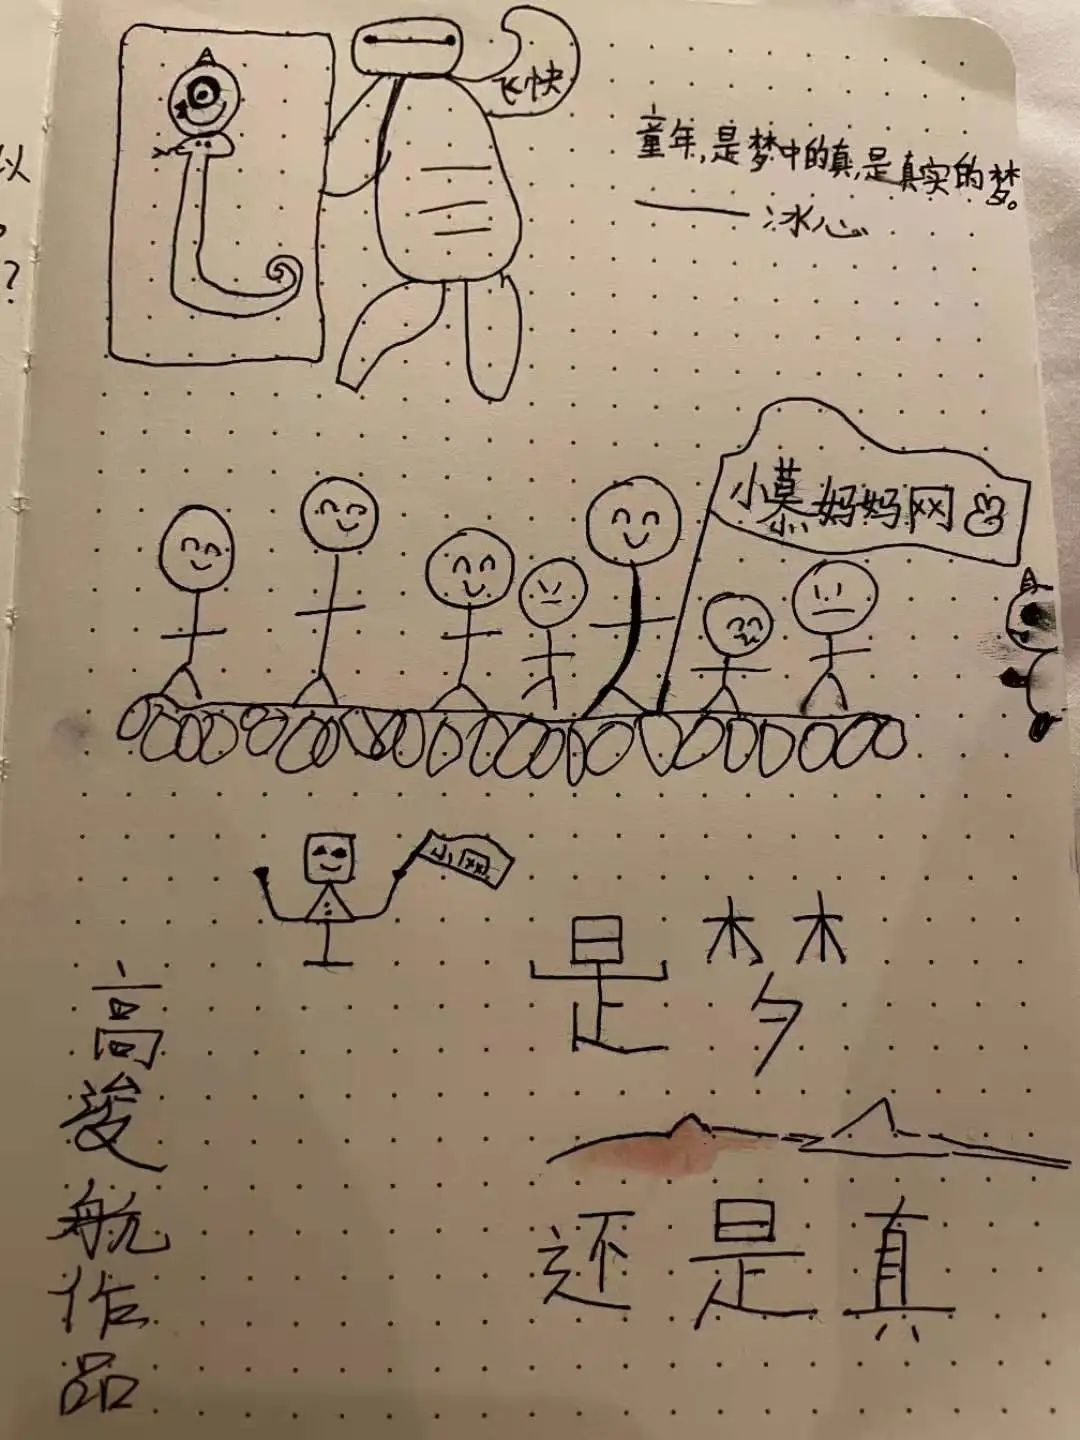 飞快
童年,是梦中的真,是真实的梦。
——冰心
小慕妈妈网
小网
是梦
还是真
高浚航作品
以
?